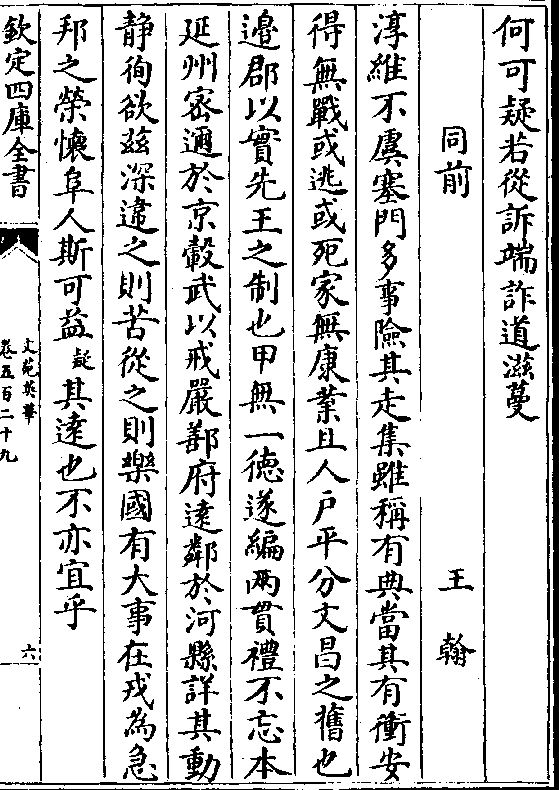 何可疑若從訴端詐道滋蔓
同前 王翰
淳維不虞塞門多事險其走集雖稱有典當其有衝安
得無戰或逃或死家無康業且人戶平分文昌之舊也
邊郡以實先王之制也甲無一德遂編兩貫禮不忘本
延州密邇於京轂武以戒嚴鄯府遠鄰於河縣詳其動
静徇欲兹深違之則苦從之則樂國有大事在戎為急
邦之榮懷阜人斯可益疑其遠也不亦宜乎
欽定四庫全書
文苑英華
卷五百二十九
六